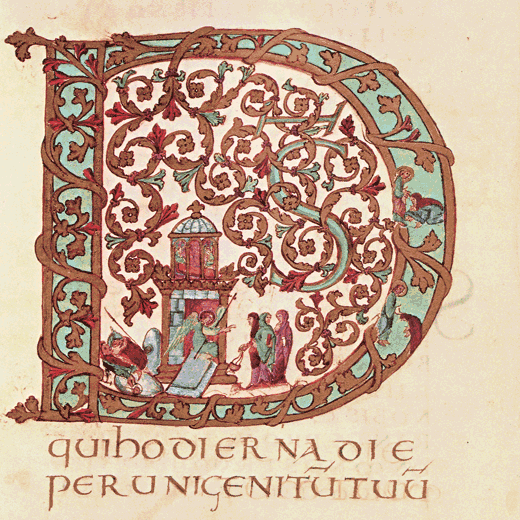 DS
quihodiernadie
perunigenitūtuū